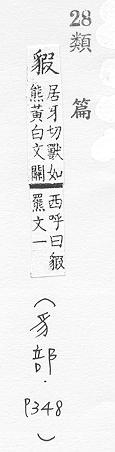 28類
篇
貑
居牙切獸如
熊黃白文關
西呼曰貑
羆文一
(豸部.
P348)